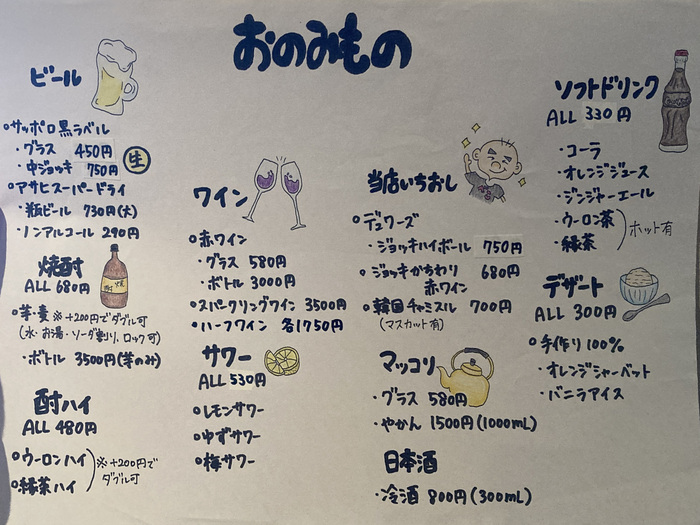 おのみもの
ビール
サッポロ黒ラベル
・グラス 450円
・中ジョッキ 750円
生
アサヒスーパードライ
・瓶ビール 730円(大)
・ノンアルコール 290円
焼酎
ALL 680円
芋・麦 ※+200円でダブル可
(水・お湯・ソーダ割り、ロック可)
・ボトル 3500円(芋のみ)
酎ハイ
ALL 480円
ウーロンハイ
緑茶ハイ
※+200円で
ダブル可
ワイン
赤ワイン
・グラス 580円
・ボトル 3000円
スパークリングワイン 3500円
ハーフワイン 各1750円
サワー
ALL 530円
レモンサワー
ゆずサワー
梅サワー
当店いちおし
デュワーズ
・ジョッキハイボール 750円
ジョッキかちわり 680円
赤ワイン
韓国チャミスル 700円
(マスカット有)
マッコリ
・グラス 580円
・やかん 1500円(1000mL)
日本酒
・冷酒 800円(300mL)
ソフトドリンク
ALL 330円
・コーラ
・オレンジジュース
・ジンジャーエール
・ウーロン茶
・緑茶
ホット有
デザート
ALL 300円
手作り100%
・オレンジシャーベット
・バニラアイス